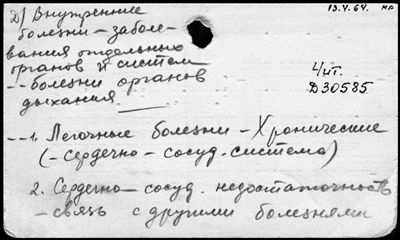 Д) Внутренние
болезни - заболе-
вания отдельных
органов и систем
-- болезни органов
дыхания.
13.4.64. нр
Чит.
Д30585
--1. Легочные болезни - Хронические
(- сердечно - сосуд. система)
2. Сердечно - сосуд. недостаточность
- связь с другими болезнями